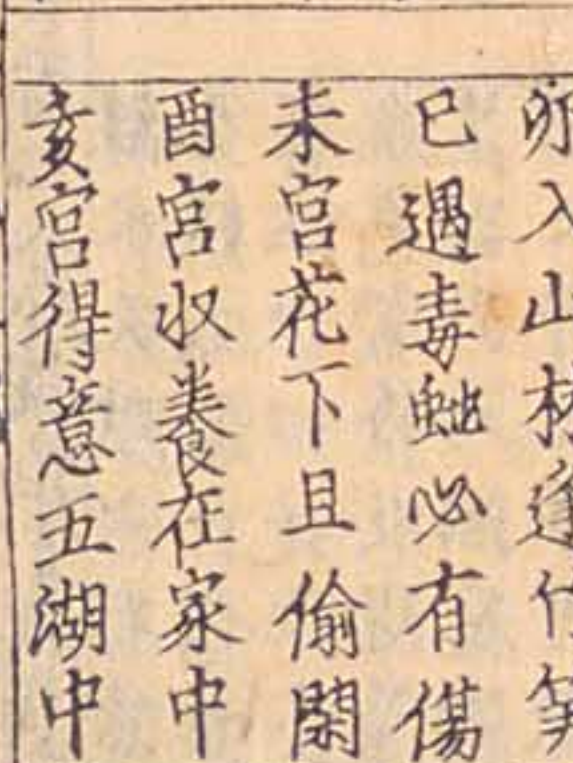 卯入山林逢竹
巳遇毒虵必有傷
未宮花下且偷閑
酉宮収養在家中
亥宮得意五湖中